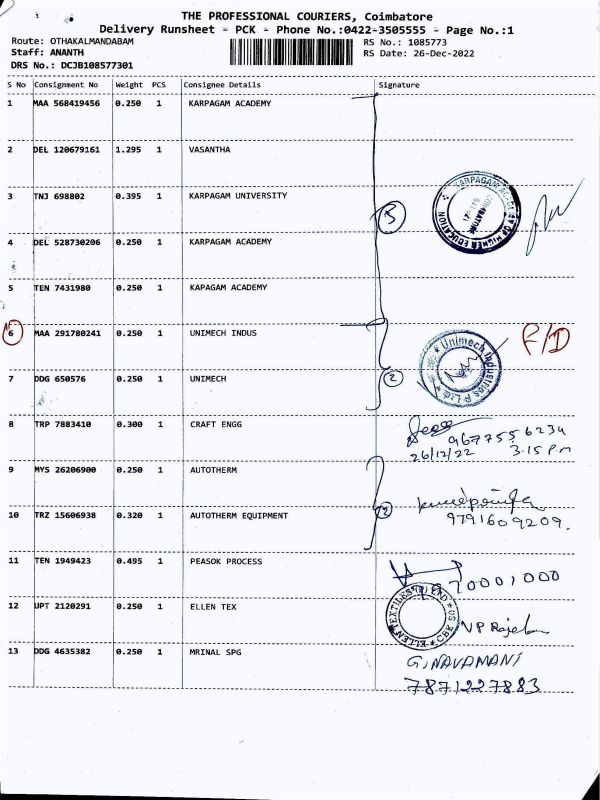 THE PROFESSIONAL COURIERS, Coimbatore
Delivery Runsheet - PCK - Phone No.:0422-3505555 - Page No.:1
Route: OTHAKALMANDABAM RS No.: 1085773
Staff: ANANTH RS Date: 26-Dec-2022
DRS No.: DCJB108577301
S No Consignment No Weight PCS Consignee Details Signature
1 MAA 568419456 0.250 1 KARPAGAM ACADEMY
2 DEL 120679161 1.295 1 VASANTHA
3 TNJ 698802 0.395 1 KARPAGAM UNIVERSITY
KARPAGAM ACADEMY OF HIGHER EDUCATION
COIMBATORE
3
4 DEL 528730206 0.250 1 KARPAGAM ACADEMY
5 TEN 7431980 0.250 1 KAPAGAM ACADEMY
6 MAA 291780241 0.250 1 UNIMECH INDUS F/D
Unimech Industries P Ltd.
7 DDG 650576 0.250 1 UNIMECH 2
8 TRP 7883410 0.300 1 CRAFT ENGG
9677556234
26/12/22 3.15 P.m
9 MYS 26206900 0.250 1 AUTOTHERM
10 TRZ 15606938 0.320 1 AUTOTHERM EQUIPMENT 2
9791609209.
11 TEN 1949423 0.495 1 PEASOK PROCESS
970001000
12 UPT 2120291 0.250 1 ELLEN TEX
ELLEN TEXTILES (P) LTD
VP Rajela
13 DDG 4635382 0.250 1 MRINAL SPG G. NAVAMANI
7871227883